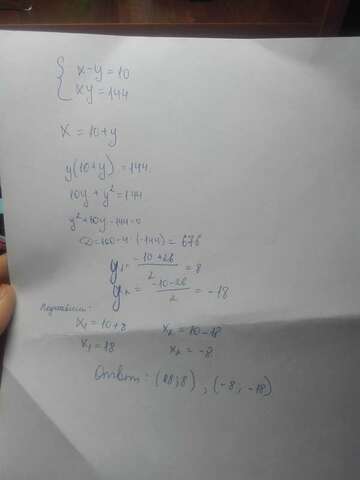 { x-y=10
xy=144
x=10+y
y(10+y)=144
10y+y²=144
y²+10y-144=0
D=100-4·(-144)=676
y₁=(-10+26)/2=8
y₂=(-10-26)/2=-18
x₁=10+8 x₂=10-18
x₁=18 x₂=-8
Ответ: (18;8), (-8;-18)